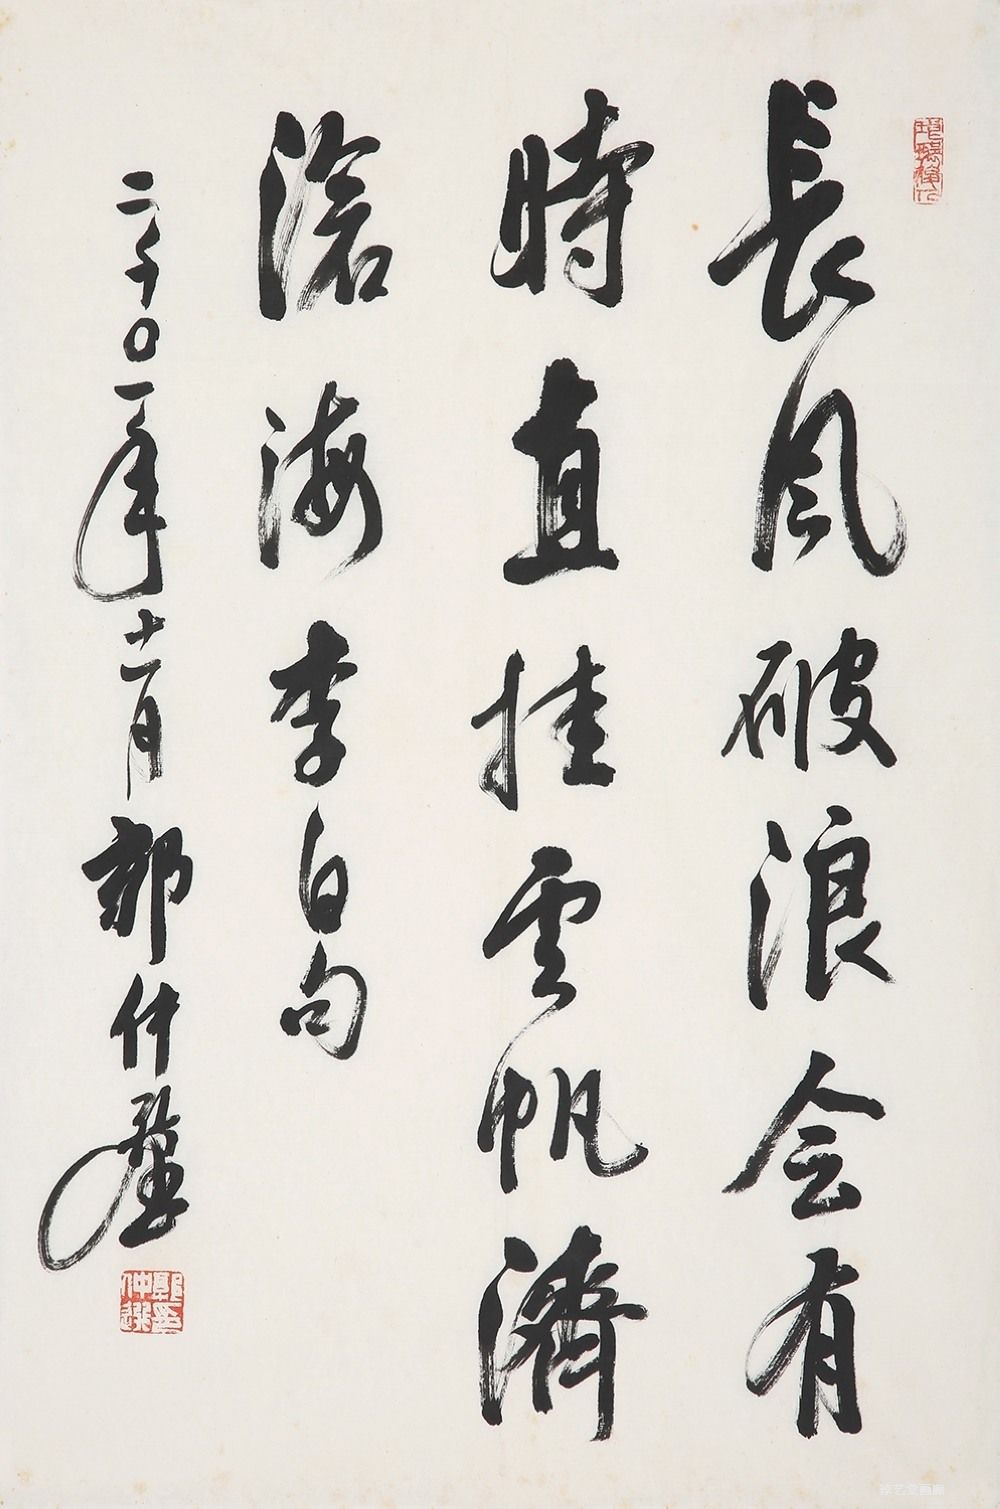 長風破浪会有
時直挂雲帆濟
滄海李白句
二千〇一年十一月郭仲選
郭仲選印